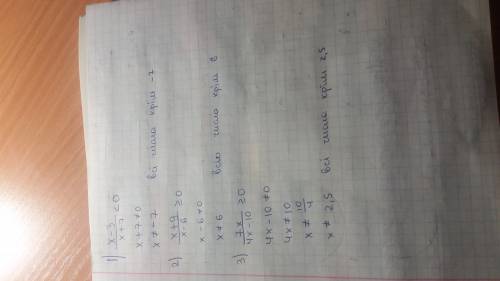 1) x-3/x+7 < 0
x+7≠0
x≠-7 всі числа крім -7
2) x+9/x-6 ≥ 0
x-6≠0
x≠6 всі числа крім 6
3) 7x/4x-10 ≥ 0
4x-10≠0
4x≠10
x≠10/4
x≠2,5 всі числа крім 2,5